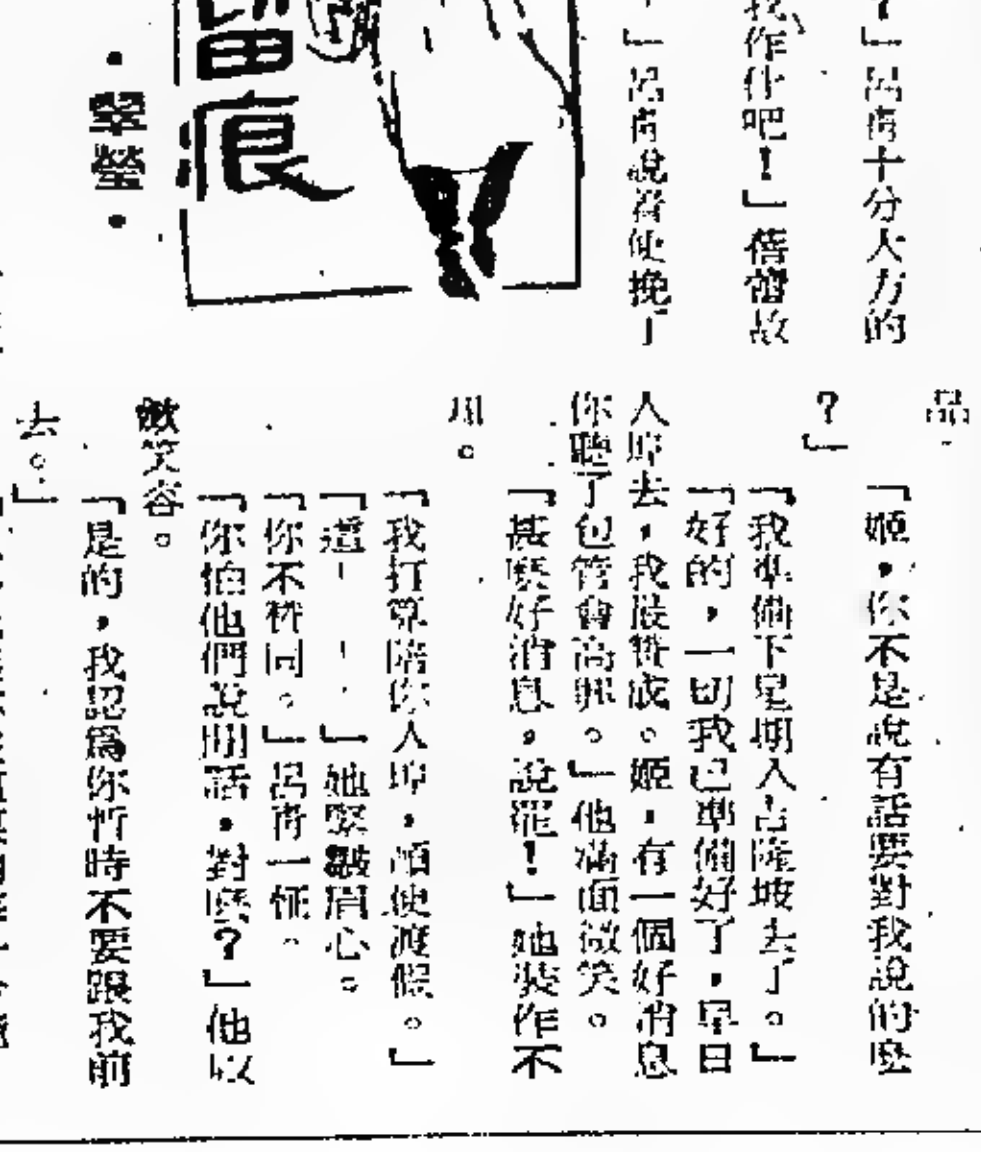 ？」呂青十分大方的
我作伴吧！」蓓蕾故
」呂青說着便挽了
留痕
·翠瑩·
品。
「姬，你不是說有話要對我說的麼
？」
「我準備下星期入吉隆坡去了。」
「好的，一切我已準備好了，早日
入埠去，我最贊成。姬，有一個好消息
你聽了包管會高興。」他滿面微笑。
「甚麼好消息，說罷！」她裝作不
明。
「我打算陪你入埠，順便渡假。」
「這－－－」她緊皺眉心。
「你不贊同。」呂青一怔。
「你怕他們說閒話，對麼？」他收
斂笑容。
「是的，我認爲你暫時不要跟我前
去。」